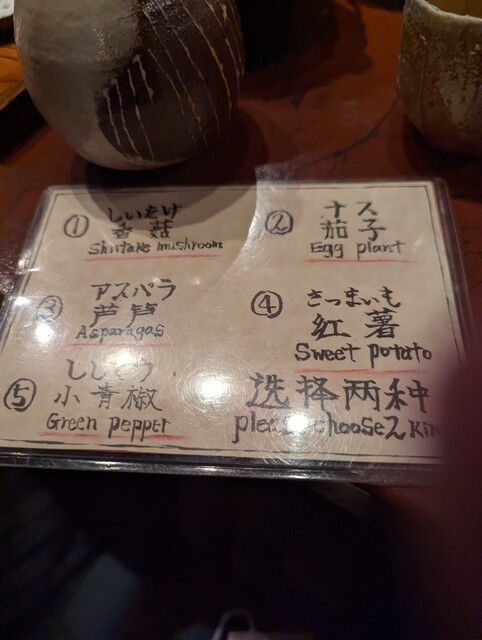 ① しいたけ
香菇
Shiitake mushroom
② ナス
茄子
Egg plant
③ アスパラ
芦芦
Asparagas
④ さつまいも
红薯
Sweet potato
⑤
小青椒
Green pepper
选择两种
please choose 2